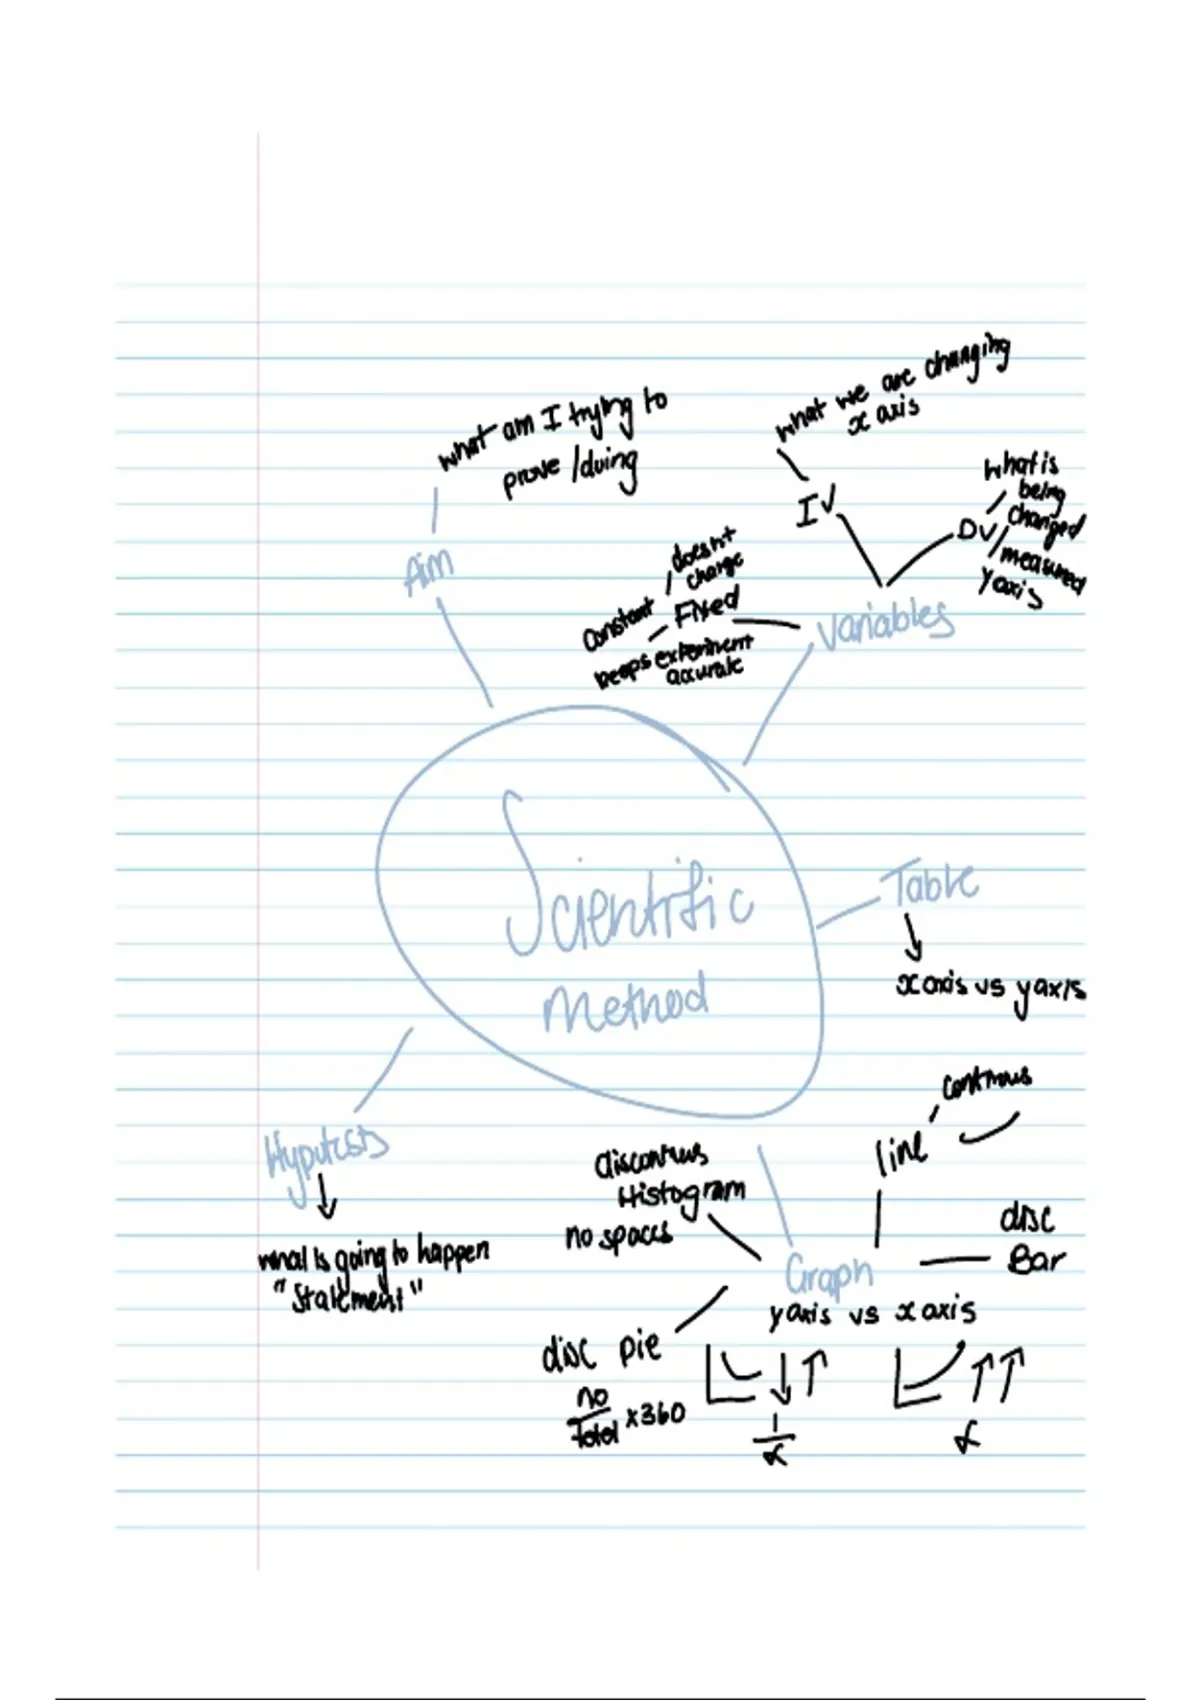 what am I trying to
prove / doing
Aim
what we are changing
x axis
IV
DV
what is
being
changed
measured
y axis
Variables
doesn't
change
constant
Fixed
keeps experiment
accurate
Scientific
Method
Table
x axis vs y axis
Hyputests
what is going to happen
"Statement"
Graph
y axis vs x axis
line
disc
Bar
Histogram
no spaces
disc pie
no
Total × 360
1
α
α